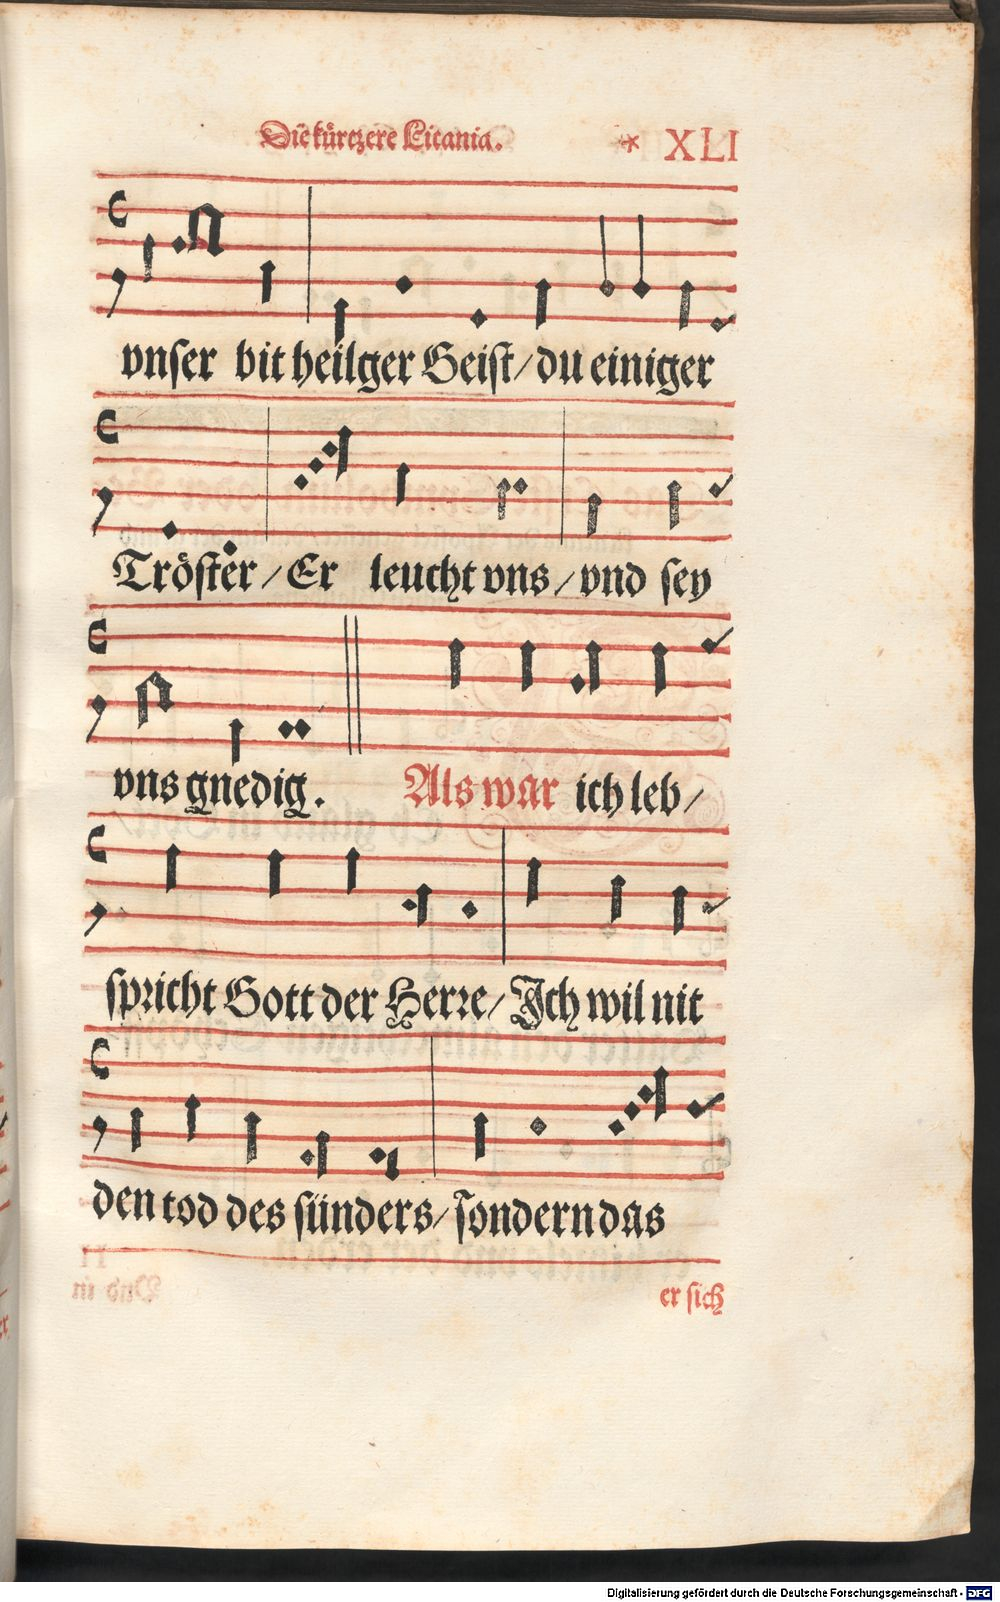 Die kürtzere Litania. * XLI
vnser bit heilger Geist/ du einiger
Tröster/ Er leucht vns/ vnd sey
vns gnedig. Als war ich leb/
spricht Gott der Herre/ Ich wil nit
den tod des sünders/ sondern das
er sich
Digitalisierung gefördert durch die Deutsche Forschungsgemeinschaft - DFG